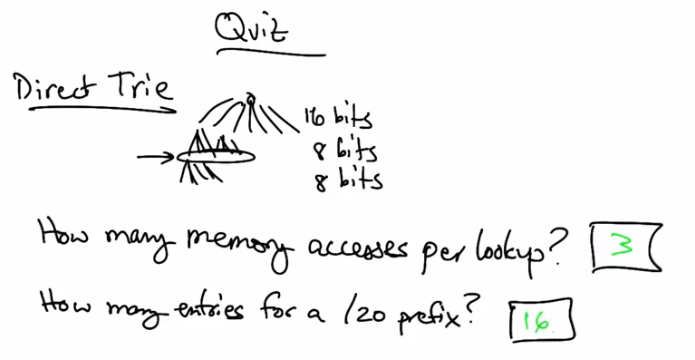 Quiz
Direct Trie
16 bits
8 bits
8 bits
How many memory accesses per lookup? 3
How many entries for a /20 prefix? 16